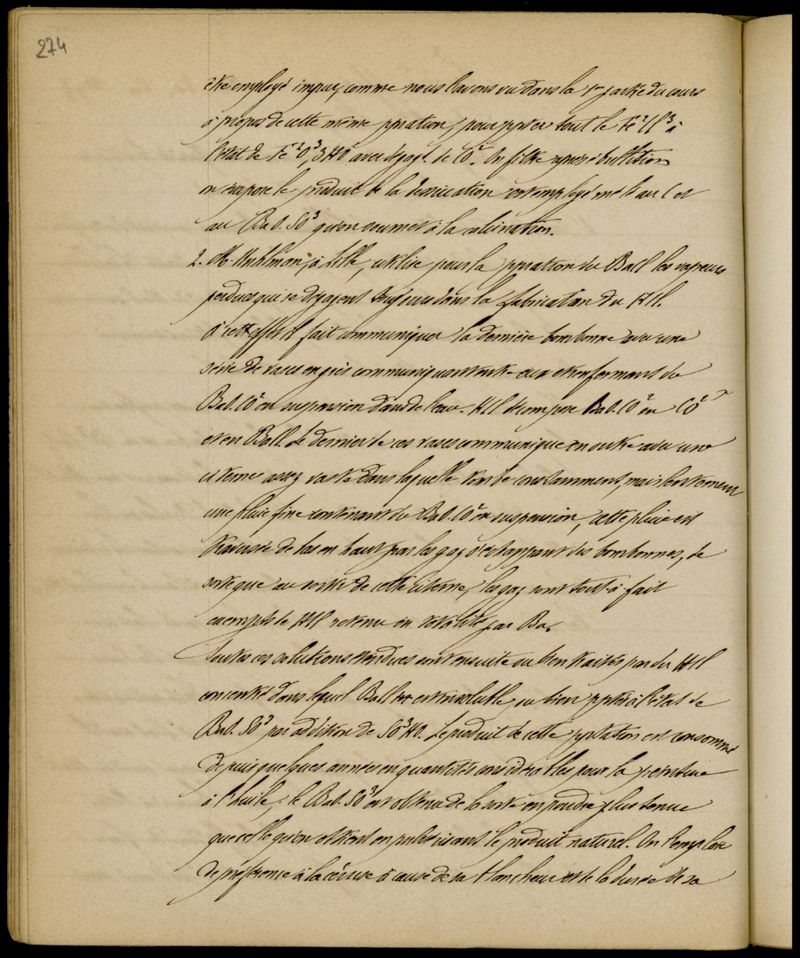 274
être employé impur, comme nous l'avons vu dans la 1re partie du cours
à propos de cette même pration, pour ppiter tout le Fe²Cl³ à
l'état de Fe²O³,3HO avec dégagt de CO². On filtre après ébullition
on évapore le produit de la dessication est employé mêlé au C et
au BaO.SO³ qu'on soumet à la calcination.
2. M Kuhlman, à Lille, utilise pour la ppration du BaCl les vapeurs
perdues qui se dégagent toujours dans la fabrication du HCl.
à cet effet il fait communiquer la dernière bombonne avec une
série de vases en grès communiquant entre eux et renfermant du
BaO.CO² en suspension dans de l'eau. HCl décompose BaO.CO² en CO²
et en BaCl. Le dernier de ces vases communique en outre avec une
citerne assez vaste dans laquelle tombe constamment, mais lentement
une pluie fine contenant du BaO.CO² en suspension, cette pluie est
traversée de bas en haut par les gaz s'échappant des bombonnes, de
sorte que au sortir de cette citerne, les gaz sont tout à fait
exempts de HCl retenu en totalité par Ba.
Toutes ces solutions étendues sont ensuite ou bien traités par du HCl
concentré dans lequel BaCl est insoluble, ou bien ppités à l'état de
BaO.SO³ par addition de SO³HO. Le produit de cette ppitation est consommé
depuis quelques années en quantités considérables pour la peinture
à l'huile; le BaO.SO³ est obtenu de la sorte en poudre plus tenue
que celle qu'on obtient en pulvérisant le produit naturel. On l'emploie
de préférence à la céruse à cause de sa blancheur et de la durée de sa